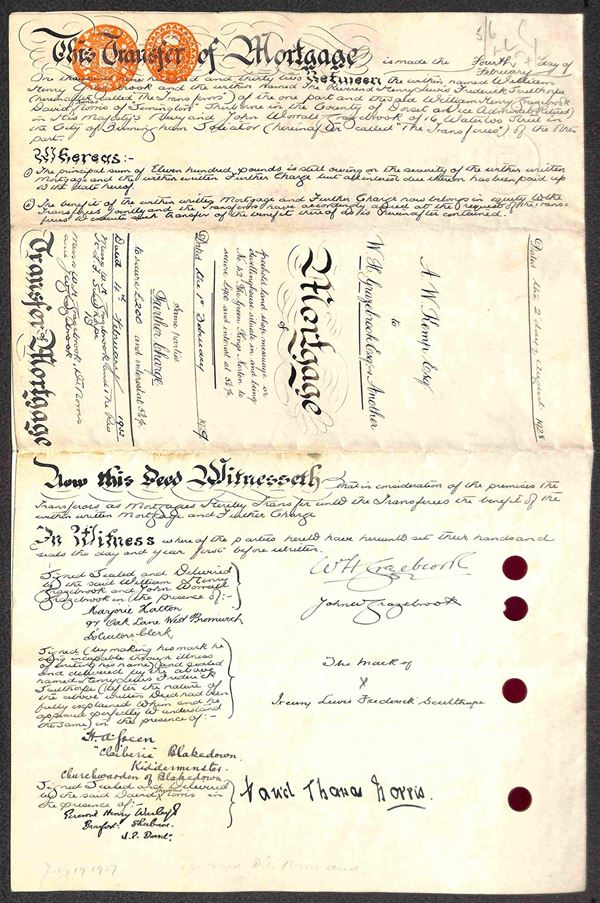 This Transfer of Mortgage is made the Fourth day of
February
One thousand nine hundred and thirty two Between the within named William
Henry Grazebrook and the within named The Reverend Henry Lewis Frederick Sculthorpe
(hereinafter called "The Transferors") of the one part and the said William Henry Grazebrook
David Thomas Norris of Flemington Sherborne in the County of Dorset Vice Admiral (Retired)
in His Majesty's Navy and John Worrall Grazebrook of 16 Waterloo Street in
the City of Birmingham Solicitor (hereinafter called "The Transferees") of the other
part.
Whereas :-
The principal sum of Eleven hundred pounds is still owing on the security of the within written
Mortgage and the within written Further Charge but all interest due thereon has been paid up
to the date hereof.
The benefit of the within written Mortgage and Further Charge now belongs in equity to the
Transferees jointly and the Transferors have accordingly agreed at the request of the Trans-
ferees to execute such transfer of the benefit thereof as is hereinafter contained.
Dated the 2 day of August 1928
A. W. Kemp Esq
to
W. H. Grazebrook Esq & Another
Mortgage
of
freehold land shop messuage or
dwellinghouse situate in and being
No 12 The Green Kings Norton to
secure £900 and interest at 5½%
Dated the 1st February 1929
Same parties
Further Charge
to secure £200 and interest at 5½%
Dated 4th February 1932
Messrs W. H. Grazebrook and The Rev
H. L. F. Sculthorpe
to
Messrs W. H. Grazebrook, D. T. Norris
and J. W. Grazebrook
Transfer of Mortgage
Now this Deed Witnesseth that in consideration of the premises the
Transferors as Mortgagees Hereby Transfer unto the Transferees the benefit of the
within written Mortgage and Further Charge
In Witness whereof the parties hereto have hereunto set their hands and
seals the day and year first before written.
Signed Sealed and Delivered
by the said William Henry
Grazebrook and John Worrall
Grazebrook in the presence of :-
W H Grazebrook
John W Grazebrook
Marjorie Hatton
94 Oak Lane West Bromwich
Solicitors Clerk
Signed (by making his mark he
being incapable through illness
of writing his name) and sealed
and delivered by the above
named Henry Lewis Frederick
Sculthorpe (after the nature of
the above written Deed had been
fully explained to him and he
appeared perfectly to understand
the same) in the presence of :-
The Mark of
X
Henry Lewis Frederick Sculthorpe
H. A. Green
Blakedown.
Kidderminster.
Churchwarden of Blakedown
Signed Sealed and Delivered
by the said David Thomas Norris in
the presence of :-
David Thomas Norris.
Henry
Sherborne
J.P. Dorset.